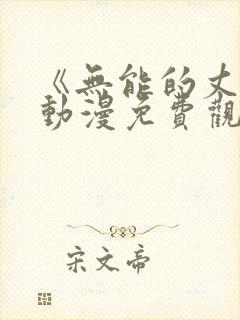 《無能的丈
動漫免費觀
宋文帝